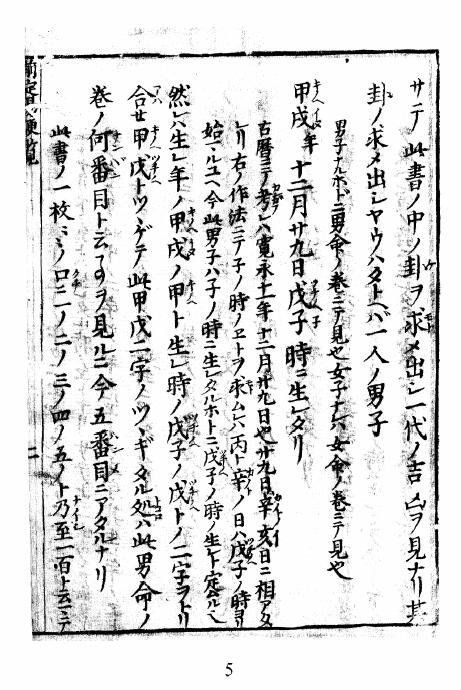 サテ此書ノ中ノ卦ヲ求メ出シ一代ノ吉凶ヲ見ナリ其
卦ノ求メ出シヤウハタトヘハ一人ノ男子
男子ナルホドニ男命ノ巻ニテ見也女子ナレハ女命ノ巻ニテ見也
甲戌年十二月廿九日戊子時ニ生レタリ
古暦ニテ考レハ寛永十一年十二月廿九日也廿九日辛亥日ニ相アタ
レリ右ノ作法ニテ子ノ時ノヱトヲ求ムルニ丙辛ノ日ハ戊子ノ時ヨリ
始ルユヘ今此男子ハ子ノ時ニ生レタルホトニ戊子ノ時ノ生レト定ムル也
然レハ生レ年ノ甲戌ノ甲ト生レ時ノ戊子ノ戊トノ二字ヲトリ
合セ甲戊トツヾケテ此甲戊二字ノツヾキタル処ハ此男命ノ
巻ノ何番目ト云フヲ見ルニ今五番目ニアタルナリ
此書ノ一枚ニノ口ニ一ノ二ノ三ノ四ノ五ノト乃至一百ト云
二
5